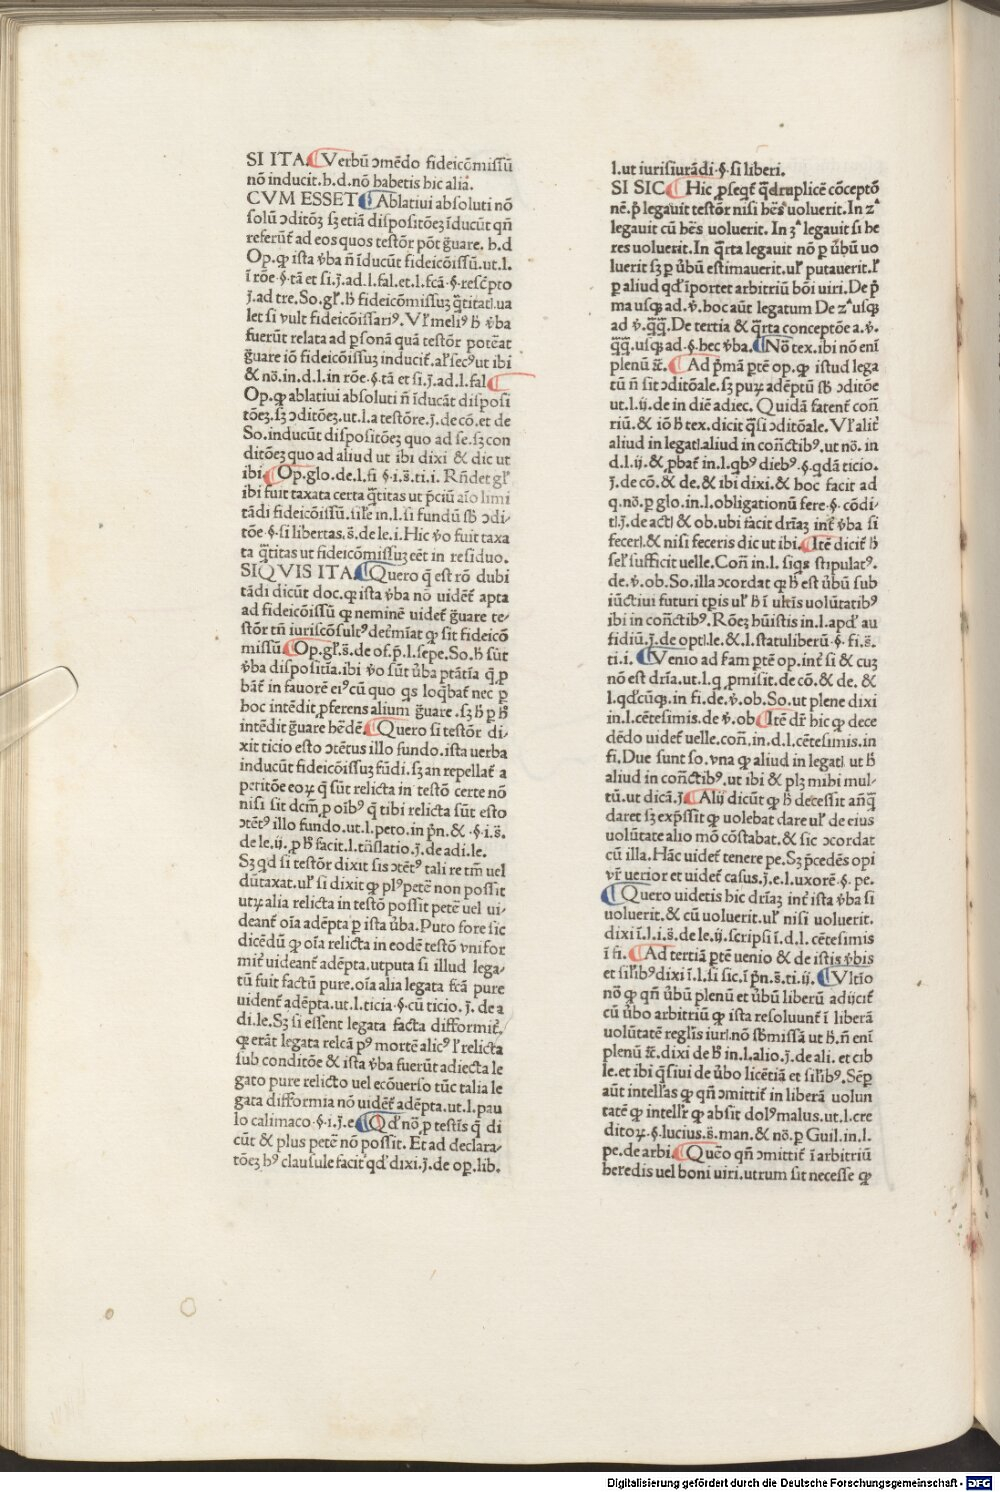 SI ITA. Verbū ɔmēdo fideicōmissū
nō inducit. h. d. nō habetis hic aliā.
CVM ESSET Ablatiui absoluti nō
solū ɔditōꝫ sꝫ etiā dispositōeꝫ īducūt qn̄
referūt᷑ ad eos quos testōr pōt g̃uare. h. d
Op. ꝙ ista v̄ba n̄ īducūt fideicōissū. ut. l.
ī rōe. §. tā et si. j. ad. l. fal. et. l. fcā. §. rescp̄to
j. ad tre. So. gl̄. h̄ fideicōmissuꝫ q̄titatꝭ ua
let si vult fideicōissariꝰ. Vl̄ meliꝰ h̄ v̄ba
fuerūt relata ad p̱sonā quā testōr potēat
g̃uare iō fideicōissuꝫ inducit᷑. al̄ secꝰ ut ibi
& nō. in. d. l. in rōe. §. tā et si. j. ad. l. fal.
Op. ꝙ ablatiui absoluti n̄ īducāt disposi
tōeꝫ. sꝫ ɔditōeꝫ. ut. l. a testōre. j. de cō. et de
So. inducūt dispositōeꝫ quo ad se. sꝫ con
ditōeꝫ quo ad aliud ut ibi dixi & dic ut
ibi. Op. glo. de. l. fi §. i. s̄. ti. i. Rn̄det gl̄
ibi fuit taxata certa q̄titas ut p̄ciū aīo limi
tādi fideicōissū. sil̄e in. l. si fundū sb̄ ɔdi-
tōe. §. si libertas. s̄. de le. i. Hic v̄o fuit taxa
ta q̄titas ut fideicōmissuꝫ eēt in residuo.
SIQVIS ITA. Quero q̄ est rō dubi
tādi dicūt doc. ꝙ ista v̄ba nō uidēt᷑ apta
ad fideicōissū ꝙ neminē uidet᷑ g̃uare te-
stōr tn̄ iuriscōsultꝰ det̄mīat ꝙ sit fideicō
missū. Op. gl̄. s̄. de of. p̄. l. sepe. So. h̄ sūt
v̄ba dispositīa. ibi v̄o sūt ūba ptātīa q̄. p̱
bāt᷑ in fauorē eiꝰ cū quo qs loq̄bat᷑ nec p̱
hoc intēdit p̱ferens alium g̃uare. sꝫ h̄ p̱ h̄
intēdit g̃uare hēdē. Quero si testōr di-
xit ticio esto ɔtētus illo fundo. ista uerba
inducūt fideicōissuꝫ fūdi. sꝫ an repellat᷑ a
petitōe eoꝝ q̄ sūt relicta in testō certe nō
nisi sit dcm̄ p̱ oībꝰ q̄ tibi relicta sūt esto
ɔtētꝰ illo fundo. ut. l. peto. in p̄n. & §. i. s̄.
de le. ij. p̱ h̄ facit. l. tn̄slatio. j. de adi. le.
Sꝫ qd si testōr dixit sis ɔtētꝰ tali re tm̄ uel
dūtaxat. ul̄ si dixit ꝙ plꝰ petē non possit
utꝝ alia relicta in testō possit petē uel ui-
deant᷑ oīa adēpta p̱ ista ūba. Puto fore sic
dicēdū ꝙ oīa relicta in eodē testō vnifor
mit᷑ uideant᷑ adēpta. utputa si illud lega-
tū fuit factū pure. oīa alia legata fcā pure
uident᷑ adēpta. ut. l. ticia §. cū ticio. j. de a
di. le. Sꝫ si essent legata facta difformit᷑.
ꝙ erāt legata relcā pꝰ mortē alicꝰ l̄ relicta
sub conditōe & ista v̄ba fuerūt adiecta le
gato pure relicto uel ecōuerso tūc talia le
gata difformia nō uidēt᷑ adēpta. ut. l. pau
lo calimaco. §. i. j. e. Qd nō. p̱ testīs q̄ di
cūt & plus petē nō possit. Et ad declara-
tōeꝫ hꝰ clausule facit qd dixi. j. de op. lib.
l. ut iurisiurādi. §. si liberi.
SI SIC. Hic p̱seqt᷑ q̄druplicē cōceptō
nē. p̄ legauit testōr nisi hēs uoluerit. In zᵃ
legauit cū hēs uoluerit. In ʒᵃ legauit si he
res uoluerit. In q̄rta legauit nō p̱ ūbū uo
luerit sꝫ p̱ ūbū estimauerit. ul̄ putauerit. l̄
p̱ aliud qd īportet arbitriū bōi uiri. De p̄
ma usqꝫ ad. v̄. hoc aūt legatum De zᵃ usqꝫ
ad v̄. q̄q̄. De tertia & q̄rta conceptōe a. v̄.
q̄q̄. usqꝫ ad. §. hec v̄ba. Nō tex. ibi nō enī
plenū &c̄. Ad p̄mā p̱tē op. ꝙ istud lega
tū n̄ sit ɔditōale. sꝫ puꝝ adēptū sb̄ ɔditōe
ut. l. ij. de in diē adiec. Quidā fatent᷑ con̄
riū. & iō h̄ tex. dicit q̄si ɔditōale. Vl̄ alit᷑
aliud in legatꝭ aliud in con̄ctibꝰ. ut nō. in
d. l. ij. & p̱bat᷑ in. l. qbꝰ diebꝰ. §. qdā ticio.
j. de cō. & de. & ibi dixi. & hoc facit ad
q. nō. p̱ glo. in. l. obligationū fere. §. cōdi-
tꝭ. j. de actꝭ & ob. ubi facit dr̄iaꝫ int᷑ v̄ba si
fecerꝭ. & nisi feceris dic ut ibi. Itē dicit᷑ h̄
sel̄ sufficit uelle. Con̄ in. l. siqs stipulatꝰ.
de. v̄. ob. So. illa ɔcordat ꝙ h̄ est ūbū sub
iūctiui futuri tp̱is ul̄ h̄ ī ultīs uolūtatibꝰ
ibi in con̄ctibꝰ. Rōeꝫ hūistis in. l. apd au
fidiū. j. de optꝭ. le. & l. statuliberū §. fi. s̄.
ti. i. Venio ad fam p̱tē op. int᷑ si & cuꝫ
nō est dr̄ia. ut. l. q p̱misit. de cō. & de. &
l. qdcūqꝫ. in fi. de. v̄. ob. So. ut plene dixi
in. l. cētesimis. de v̄. ob Itē dr̄ hic ꝙ dece
dēdo uidet᷑ uelle. con̄. in. d. l. cētesimis. in
fi. Due sunt so. vna ꝙ aliud in legatꝭ ut h̄
aliud in con̄ctibꝰ. ut ibi & plꝫ mihi mul-
tū. ut dicā. j. Alij dicūt ꝙ h̄ decessit an̄q̄
daret sꝫ exp̄ssit ꝙ uolebat dare ul̄ de eius
uolūtate alio mō cōstabat. & sic ɔcordat
cū illa. Hāc uidet᷑ tenere pe. Sꝫ p̄cedēs opi
vr̄ uerior et uidet᷑ casus. j. e. l. uxorē. §. pe.
Quero uidetis hic dr̄iaꝫ int᷑ ista v̄ba si
uoluerit. & cū uoluerit. ul̄ nisi uoluerit.
dixi ī. l. i. s̄. de le. ij. scripsi ī. d. l. cētesimis
ī fi. Ad tertiā p̱tē uenio & de istis v̄bis
et sil̄ibꝰ dixi ī. l. si sic. ī p̄n. s̄. ti. ij. Vltīo
nō ꝙ qn̄ ūbū plenū et ūbū liberū adijcit᷑
cū ūbo arbitriū ꝙ ista resoluunt᷑ ī liberā
uolūtatē regl̄is iurꝭ. nō sb̄missā ut h̄. n̄ enī
plenū &c̄. dixi de h̄ in. l. alio. j. de ali. et cib
le. et ibi q̄siui de ūbo licētiā et sil̄ibꝰ. Sēp̱
aūt intell̄as ꝙ qn̄ ɔmittit᷑ in liberā uolun
tatē ꝙ intell̄r ꝙ absit dolꝰ malus. ut. l. cre
ditoꝝ. §. lucius. s̄. man. & nō. p̱ Guil. in. l.
pe. de arbi. Quēo qn̄ ɔmittit᷑ ī arbitriū
heredis uel boni uiri. utrum sit necesse ꝙ
Digitalisierung gefördert durch die Deutsche Forschungsgemeinschaft - DFG